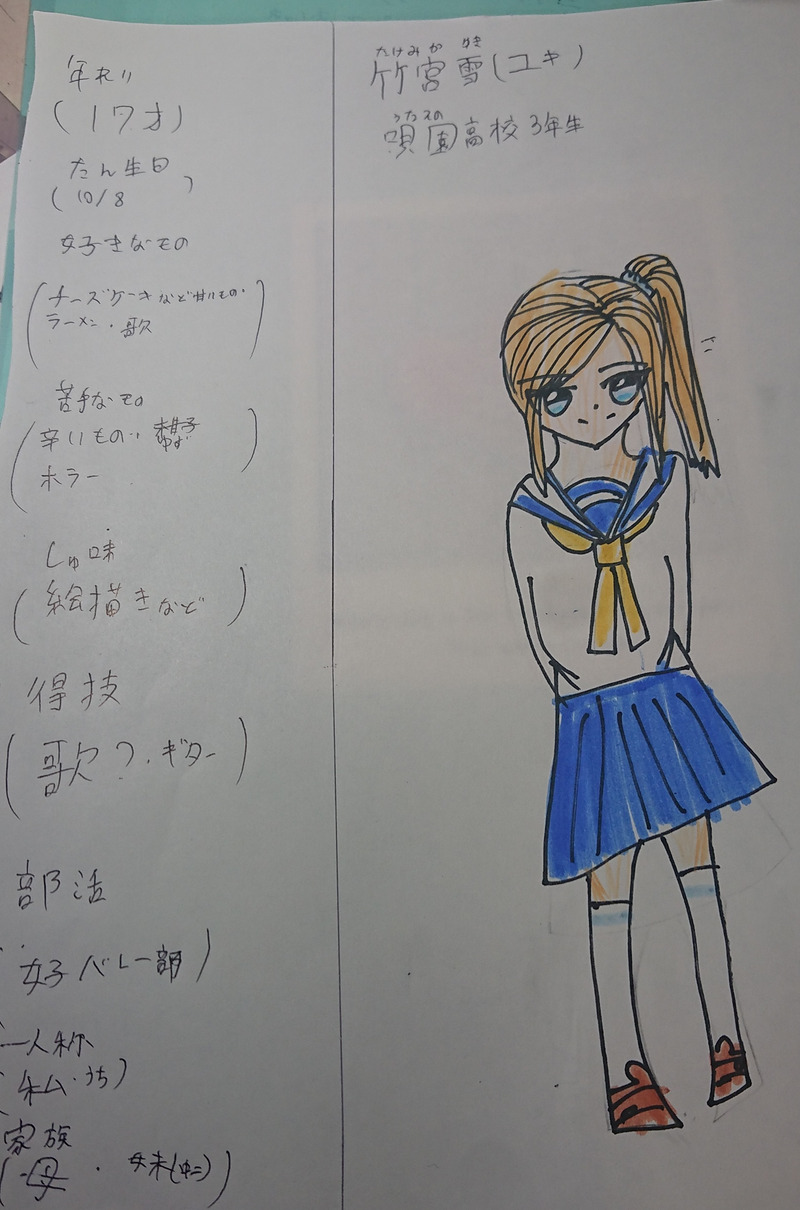 年れい
(17才)
たん生日
(10/8 )
好きなもの
(チーズケーキなど甘いもの・
ラーメン・歌)
苦手なもの
(辛いもの・
ホラー)
しゅ味
(絵描きなど)
得技
(歌?・ギター)
部活
女子バレー部)
一人称
(私・うち)
家族
(母・妹(中二))
たけみや ゆき
竹宮 雪(ユキ)
うたその
唄園高校3年生